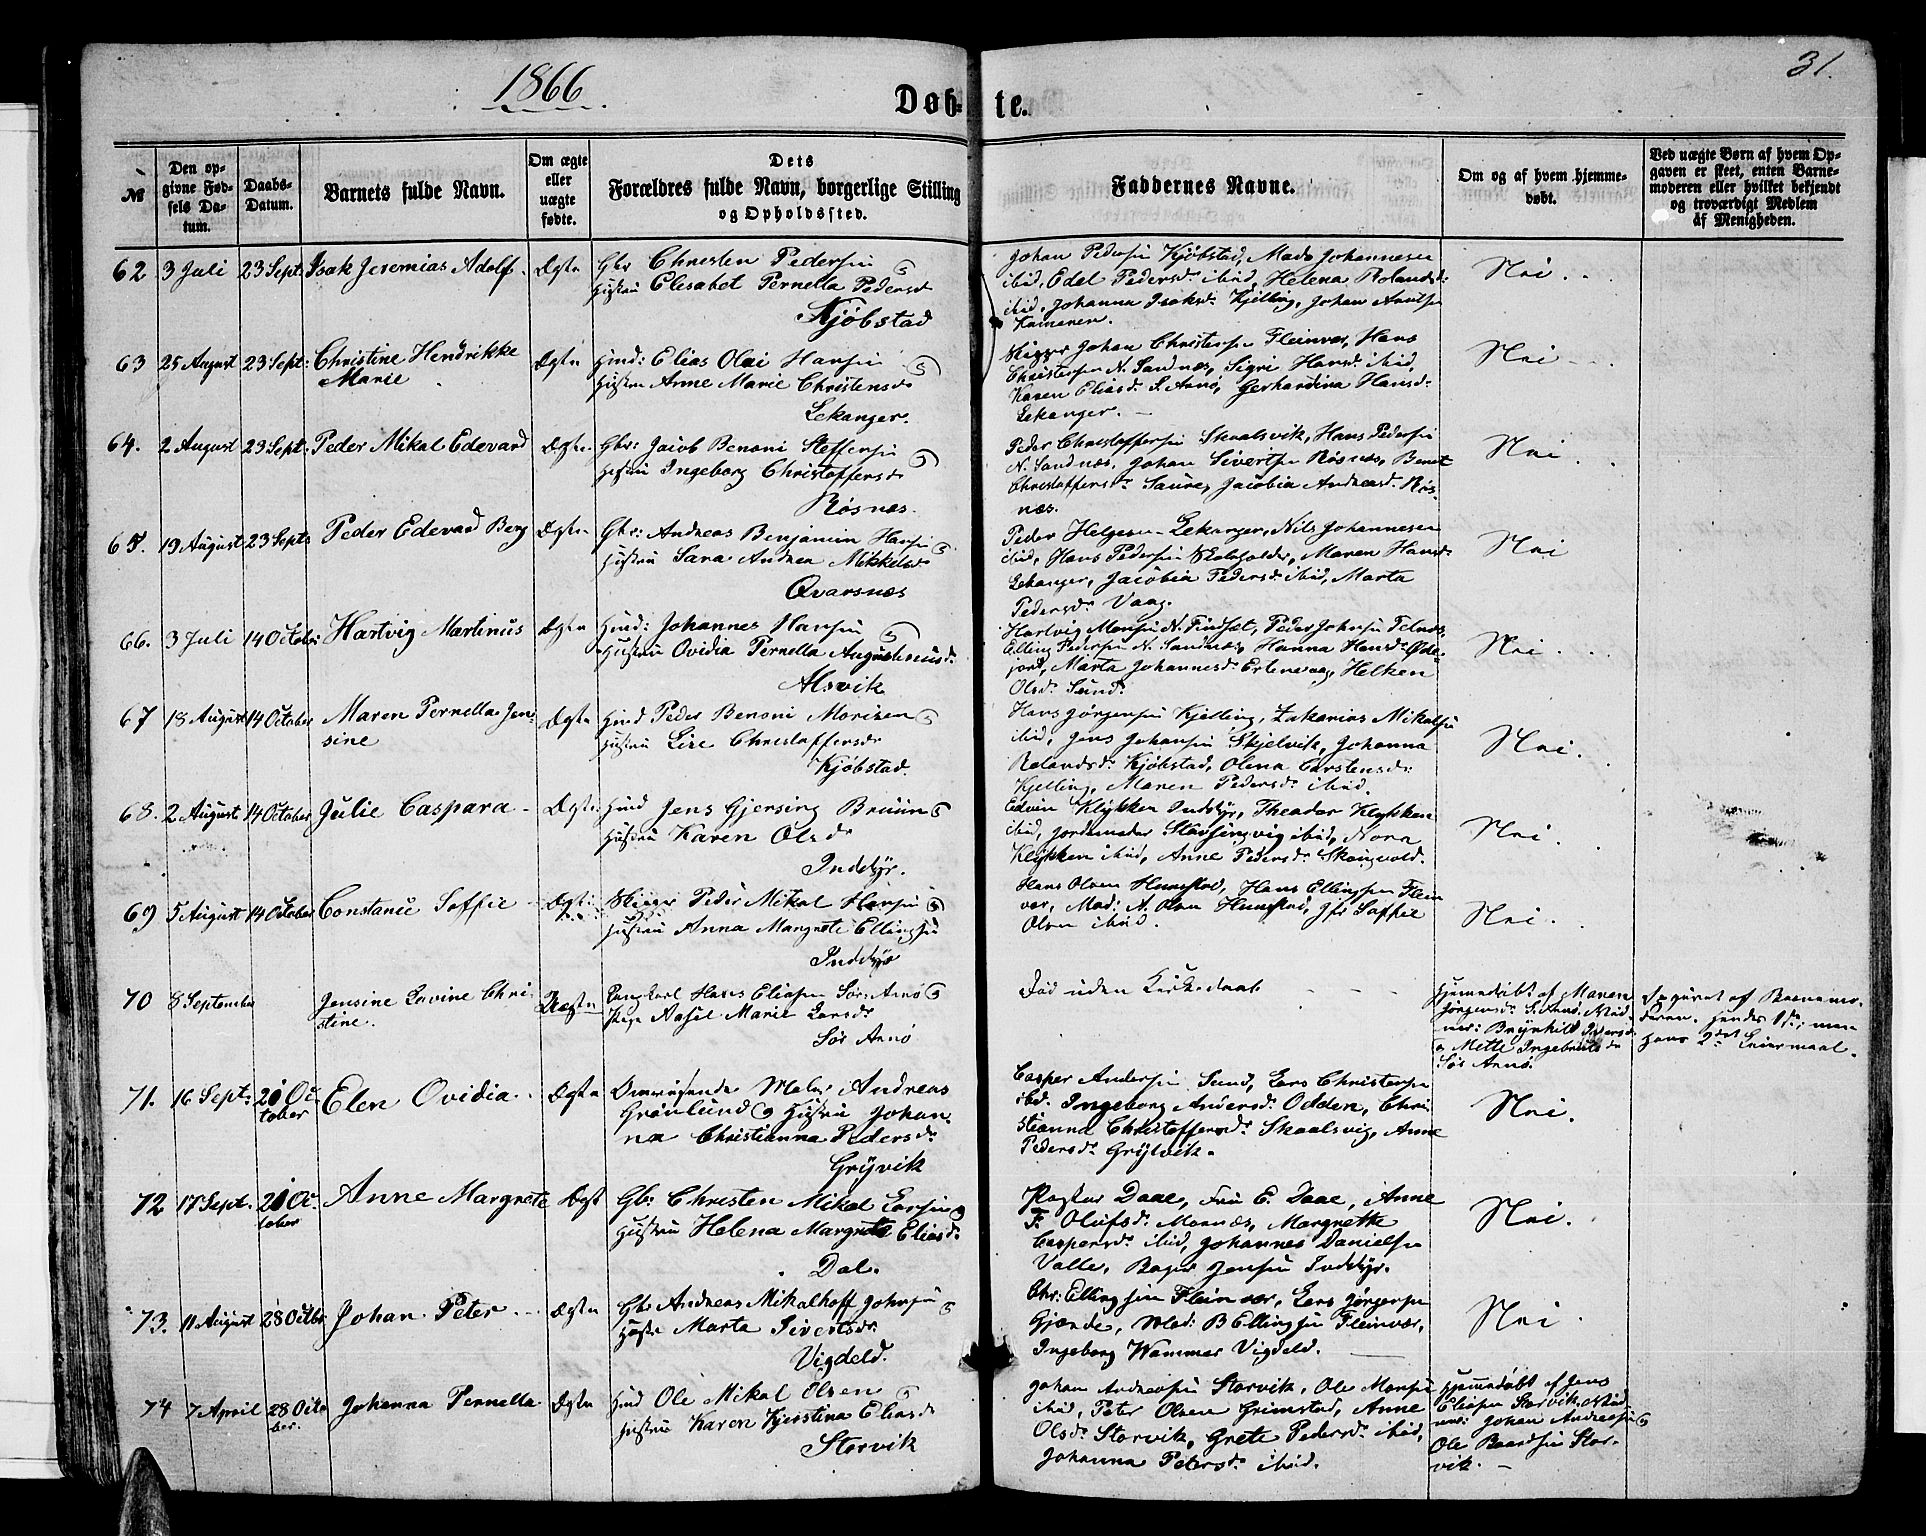 1866
31.
Døb-
te.
№
Den op-
givne Fød-
sels Da-
tum.
Daabs-
Datum.
Barnets fulde Navn.
Om ægte
eller
uægte
fødte.
Dets
Forældres fulde Navn, borgerlige Stilling
og Opholdssted.
Faddernes Navne.
Om og af hvem hjemme-
døbt.
Ved uægte Børn af hvem Op-
gaven er skeet, enten Barne-
moderen eller hvilket bekjendt
og troværdigt Medlem
af Menigheden.
62 3 Juli 23 Sept: Isak Jeremias Adolf. Ægte
Gbr Christen Pedersen og
Hustru Elisabet Pernella Pedersd
Kjøbstad
Johan Pedersen Kjøbstad, Mads Johannesen
ibid, Edel Pedersd: ibid, Helena Rolandsd:
ibid, Johanna Isaksd: Kjelling, Johan Arntsen
Nei.
63 25 August 23 Sept: Christine Hendrikke
Marie
Ægte
Hmd: Elias Olai Hansen og
Hustru Anne Marie Christensd:
Lekanger.
Skipper Johan Christensen Fleinvær, Hans
Christensen N. Sandnæs, Sigri Hansd: ibid,
Karen Eliasd: S. Arnø, Gerhardina Hansd:
Lekanger.
Nei
64. 2 August 23 Sept: Peder Mikal Edevard Ægte
Gbr: Jacob Benoni Steffensen og
Hustru Ingeborg Christoffersd:
Røsnæs.
Peder Christoffersen Skaalsvik, Hans Pedersen
N. Sandnæs, Johan Sivertsen Røsnæs, Berit
Christoffersd: Saura, Jacobia Andreasd: Røs-
næs.
Nei
65. 19 August 23 Sept: Peder Edevard Berg Ægte
Gbr: Andreas Benjamin Hansen og
Hustru Sara Andrea Mikkelsd:
Qvarsnæs
Peder Helgesen Lekanger, Nils Johannesen
ibid, Hans Pedersen Skoleholder, Maren Hansd:
Lekanger, Jacobia Pedersd: ibid, Marta
Pedersd: Vaag.
Nei
66. 3 Juli 14 October Hartvig Martinus Ægte
Hmd: Johannes Hansen og
Hustru Ovidia Pernella Augustinusd:
Alsvik
Hartvig Monsen N. Finset, Peder Johnsen Telnes,
Elling Pedersen N. Sandnæs, Hanna Hansd:
Marta Johannesd: Ertensvaag, Helken
Olsd: Sund.
Nei.
67 18 August 14 October Maren Pernella Jen-
sine
Ægte
Hmd Peder Benoni Morisen og
Hustru Lise Christoffersd:
Kjøbstad.
Hans Jørgensen Kjelling, Zakarias Mikalsen
ibid, Jens Johansen Skjelvik, Johanna
Rolandsd: Kjøbstad, Olena Carstensd:
Kjelling, Maren Pedersd: ibid.
Nei.
68. 2 August 14 October Julie Caspara Ægte
Hmd Jens Gjersing Bruun og
Hustru Karen Olsd:
Inddyr.
Edvin Klykken Inddyr, Theador Klykken
ibid, Jordemoder ibid, Nora
Klykken ibid, Anne Pedersd: Skaugvold.
Nei.
69 5 August 14 October Constance Soffie Ægte
Skipper Peder Mikal Hansen og
Hustru Anna Margrete Ellingsen
Inddyr
Hans Olsen Hemstad, Hans Ellingsen Flein-
vær, Mad: A. Olsen Hemstad, Jfr Soffie
Olsen ibid.
Nei.
70 8 September Jensine Lovine Chri-
stine.
Uægte
Ungkarl Hans Eliasen Sør Arnø og
Pige Aasel Marie Larsd:
Sør Arnø
Død uden Kirkedaab
Hjemedøbt af Maren
Jørgensd: S. Arnø, Vid-
ner: Brynhild Pedersd:
og Mette Ingebrigtsd:
Sør Arnø.
Opgivet af Barnemo-
deren. Hendes 1ste, men
hans 2det Leiermaal.
71. 16 Sept: 21 Oc-
tober
Elen Ovidia Ægte
Omreisende Maler Andreas
Grønlund og Hustru Johan-
na Christianna Pedersd:
Grytvik
Casper Andersen Sund, Lars Christensen
ibd. Ingeborg Andersd: Odden, Chri-
stianna Christoffersd: Skaalsvig, Anne
Pedersd: Grytvik.
Nei.
72 17 Sept. 21 Oc-
tober
Anne Margrete Ægt
Gbr: Christen Mikal Larsen og
Hustru Helena Margrete Eliasd:
Dal.
Pastor Daae, Fru E. Daae, Anne
F. Olufsd: Mornæs, Margrethe
Caspersd: ibid, Johannes Danielsen
Valle, Bager Jensen Inddyr.
Nei.
73. 11 August 28 Octbr Johan Peter Ægte
Gbr Andreas Mikalhoff Johnsen og
Hustru Marta Sivertsd:
Vigdeld.
Chr: Ellingsen Fleinvær, Lars Jørgensen
Gjænde, Mad: B Ellingsen Fleinvær,
Ingeborg Hammer Vigdeld.
Nei
74 7 April 28 Octo-
ber.
Johanna Pernella Ægte
Hmd Ole Mikal Olsen og
Hustru Karen Kjerstina Eliasd:
Storvik
Johan Andreasen Storvik, Ole Monsen
ibid, Peter Olsen Grimstad, Anne
Olsd: Storvik, Grete Pedersd: ibid,
Johanna Petersd: ibid.
Hjemmedøbt af Jens
Eliasen Storvik, Vid-
ner: Johan Andreasen og
Ole Baardsen Stor-
vik.